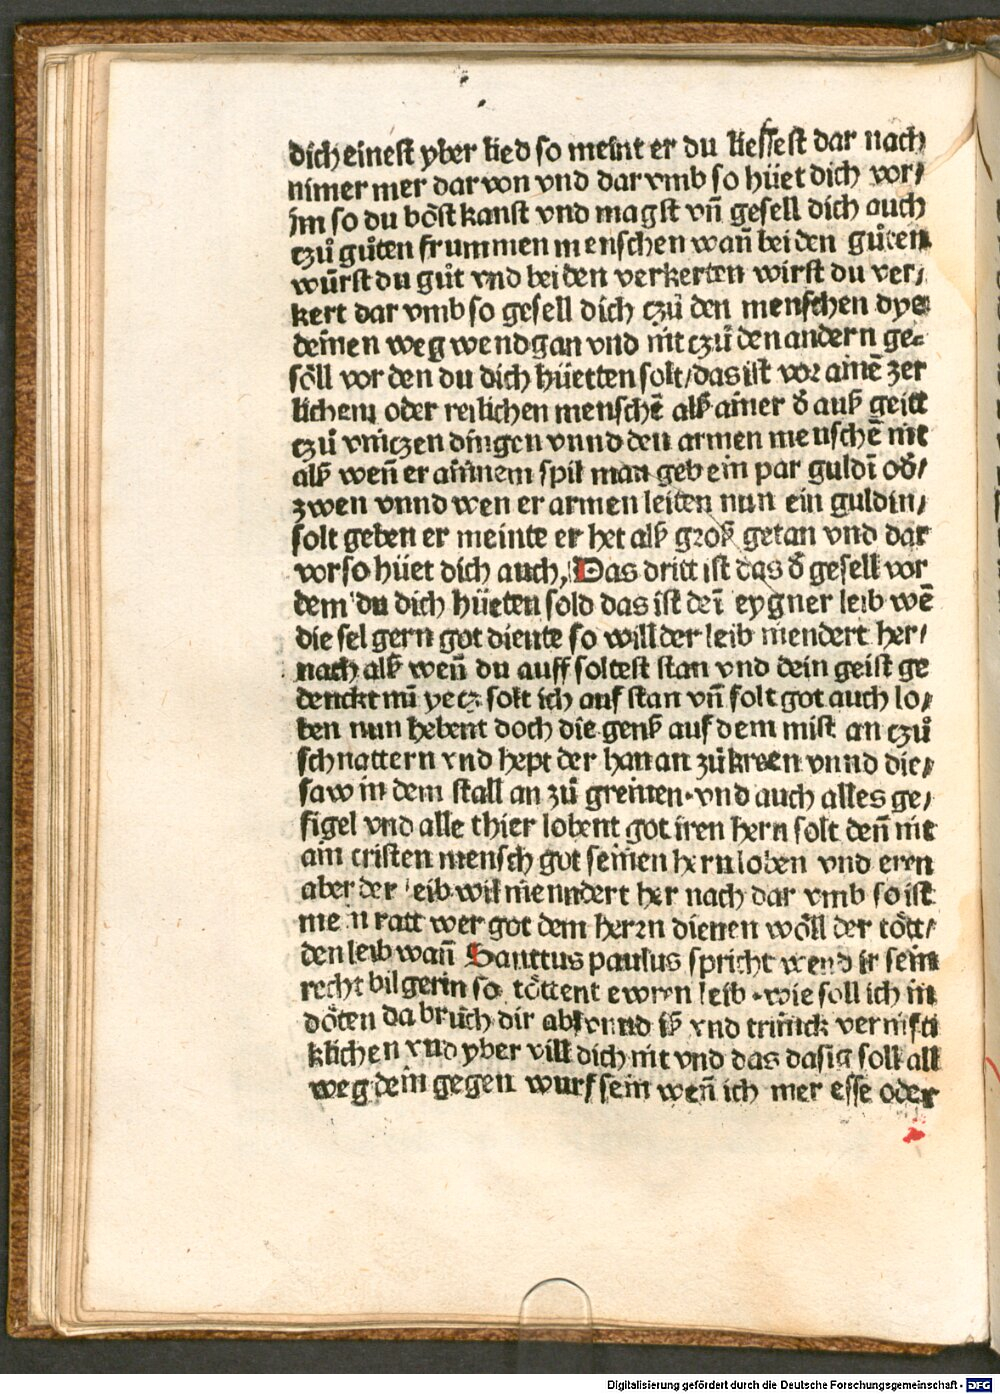 dich einest yber lied so meint er du liessest dar nach
nimer mer dar von vnd dar vmb so hüet dich vor/
im so du böst kanst vnd magst vn̄ gesell dich auch
tzů gůten frummen menschen wan̄ bei den gůten
würst du gůt vnd bei den verkerten wirst du ver/
kert dar vmb so gesell dich tzů den menschen dye
deinen weg wend gan vnd nit tzů den andern ge⸗
söll vor den du dich hüetten solt/das ist vor ainē zer
lichem oder reilichen menschē alß ainer d̄ auß geitt
tzů vniczen dingen vnnd den armen menschē nit
alß wen̄ er ainnem spil man geb ein par guldī od̄/
zwen vnnd wen er armen leiten nun ein guldin/
solt geben er meinte er het alß groß getan vnd dar
vor so hüet dich auch/ Das dritt ist das d̄ gesell vor
dem du dich hüeten sold das ist deī eygner leib wē
die sel gern got diente so will der leib niendert her/
nach alß wen̄ du auff soltest stan vnd dein geist ge
denckt nū yetz solt ich auf stan vn̄ solt got auch lo/
ben nun hebent doch die genß auf dem mist an tzů
schnattern vnd hept der han an zů kreen vnnd die/
saw in dem stall an zů greinen·vnd auch alles ge/
figel vnd alle thier lobent got iren hern solt den̄ nit
ain cristen mensch got seinen hern loben vnd eren
aber der leib wil nienndert her nach dar vmb so ist
mein ratt wer got dem herrn dienen wöll der tött/
den leib wan̄ Santtus paulus spricht wend ir sein
recht bilgerin so töttent ewren leib·wie soll ich in
döten da brüch dir ab vnnd iß vnd trinck vernifti
klichen vnd yber vill dich nit vnd das dasig soll all
weg dein gegen wurf sein wen̄ ich mer esse oder
Digitalisierung gefördert durch die Deutsche Forschungsgemeinschaft - DFG